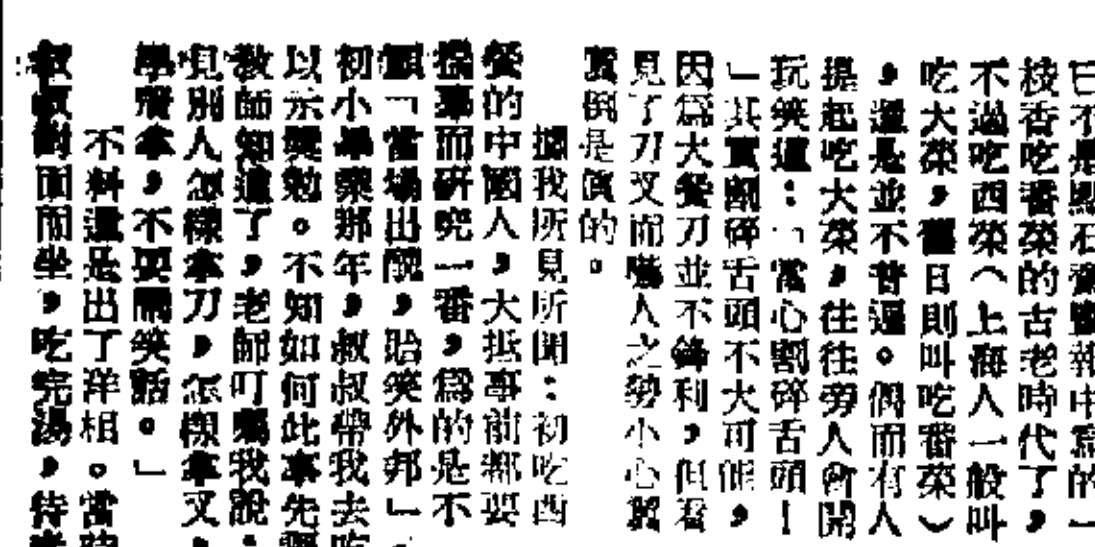 它不是點石齋畫報中寫的一
枝香吃番菜的古老時代了，
不過吃西菜（上海人一般叫
吃大菜，舊日則叫吃番菜）
，還是並不普遍。偶而有人
提起吃大菜，往往旁人會開
玩笑道：「當心割碎舌頭！
」其實割碎舌頭不大可能，
因為大餐刀並不鋒利，但看
見了刀叉而囑人之勞小心翼
實倒是真的。
據我所見所聞：初吃西
餐的中國人，大抵事前都要
操事而研究一番，為的是不
願「當場出醜，貽笑外邦」。
初小畢業那年，叔叔帶我去吃
以示獎勉。不知如何此事先
教師知道了，老師叮囑我說：
見別人怎樣拿刀，怎樣拿叉，
學着拿，不要鬧笑話。」
不料還是出了洋相。當時
叔叔對面而坐，吃完湯，侍者